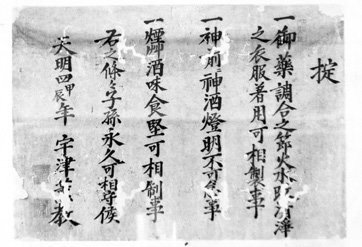 掟
一御薬調合之節火水取清浄
之衣服着用可相製事
一神前神酒燈明不可怠事
一煙草酒味食堅可相制事
右之條々子孫永久可相守候
天明四甲辰年 宇津 教